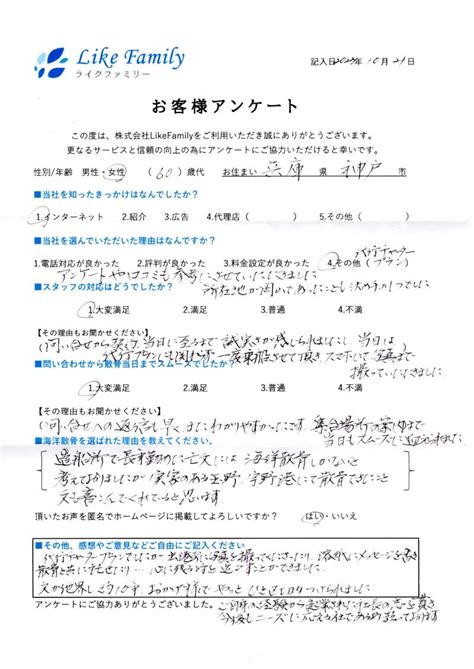 Like Family
ライクファミリー
記入日2023年10月21日
お客様アンケート
この度は、株式会社LikeFamilyをご利用いただき誠にありがとうございます。
更なるサービスと信頼の向上の為にアンケートにご協力いただけると幸いです。
性別/年齢 男性・女性 (60)歳代 お住まい 兵庫 県 神戸 市
■当社を知ったきっかけはなんでしたか？
1.インターネット 2.紹介 3.広告 4.代理店( ) 5.その他( )
■当社を選んでいただいた理由はなんですか？
代行チャーター
1.電話対応が良かった 2.評判が良かった 3.料金設定が良かった 4.その他(プラン)
アンケートや口コミも参考にさせていただきました
■スタッフの対応はどうでしたか？
所在地が岡山であったことも決め手の1つでした
1.大変満足 2.満足 3.普通 4.不満
【その理由もお聞かせください】
問い合せから契約、当日に至るまで誠実さが感じられましたし、当日は
代行プランにも関わらず一度乗船させて頂きスマホにて写真まで
■問い合わせから散骨当日までスムーズでしたか？
撮っていただきました
1.大変満足 2.満足 3.普通 4.不満
【その理由もお聞かせください】
問い合せへの返信も早く、またわかりやすかったです。集合場所の案内まで
当日もスムーズに
■海洋散骨を選ばれた理由を教えてください。
造船所で長年勤めた亡父には海洋散骨しかないと
考えておりましたが実家のある玉野、宇野港にて散骨できたこと
父も喜んでくれていると思います
頂いたお声を匿名でホームページに掲載してよろしいですか？ はい・いいえ
■その他、感想やご意見などご自由にご記入ください
代行チャータープランでしたが出港前に写真を撮ってくださったり、浴衣にメッセージを書き
散骨と共に
父が他界し おかげ様でやっとひと区切りつけられました
アンケートにご協力ありがとうございました。
ご自身の経験から起業された社長の志を貫き
今後もニーズに応える社であり